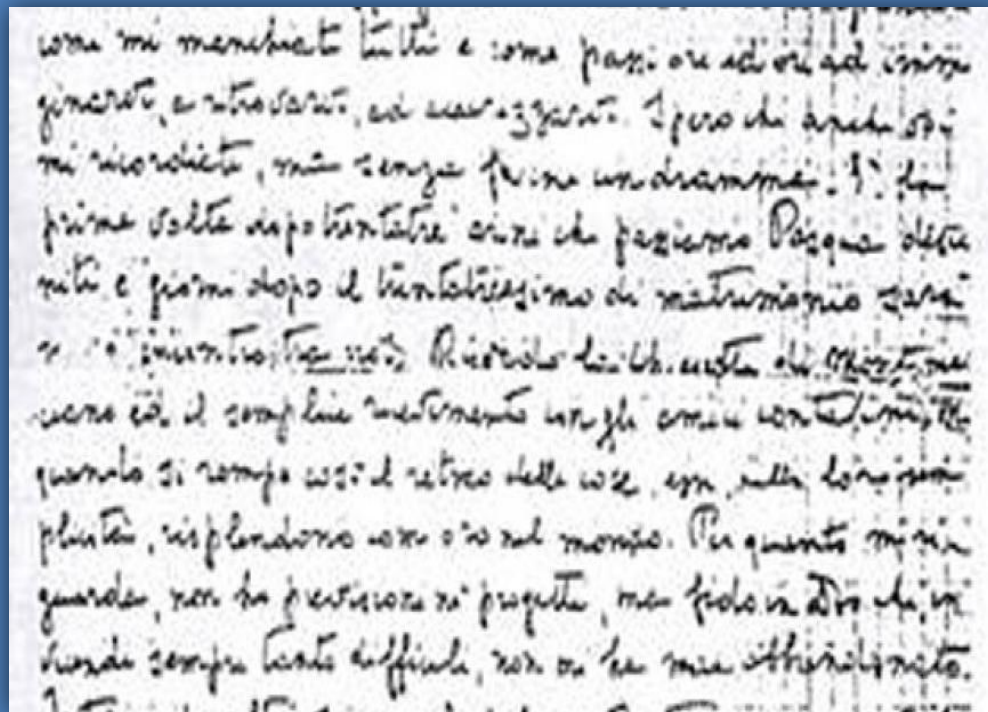 come mi manchiate tutti e come passi ore ed ore ad immi
ginarvi, a ritrovarvi, ad accarezzarvi. Spero che anche voi
mi ricordiate, ma senza farne un dramma. È la
prima volta dopo trentatré anni che passiamo Pasqua disu
niti e giorni dopo il trentatreesimo di matrimonio sarà
tra noi. Ricordo la di
ed il semplice con gli amici contadini,
quando si rompe così il retmo delle cose, esse, nella loro sem
plicità, risplendono come oro nel mondo. Per quanto mi ri
guarda, non ho previsioni né progetti, ma fido in Dio che, in
vicende sempre tanto difficili, non mi ha mai abbandonato.